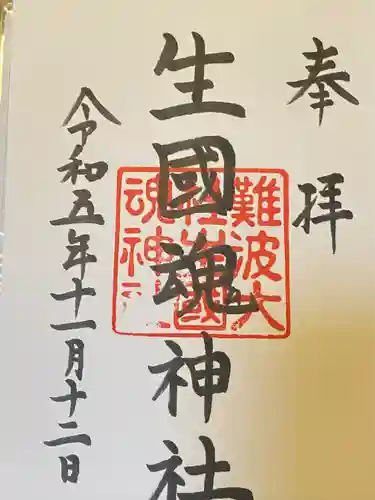 奉拝
生國魂神社
難波大
社生國
魂神社
令和五年十一月十二日